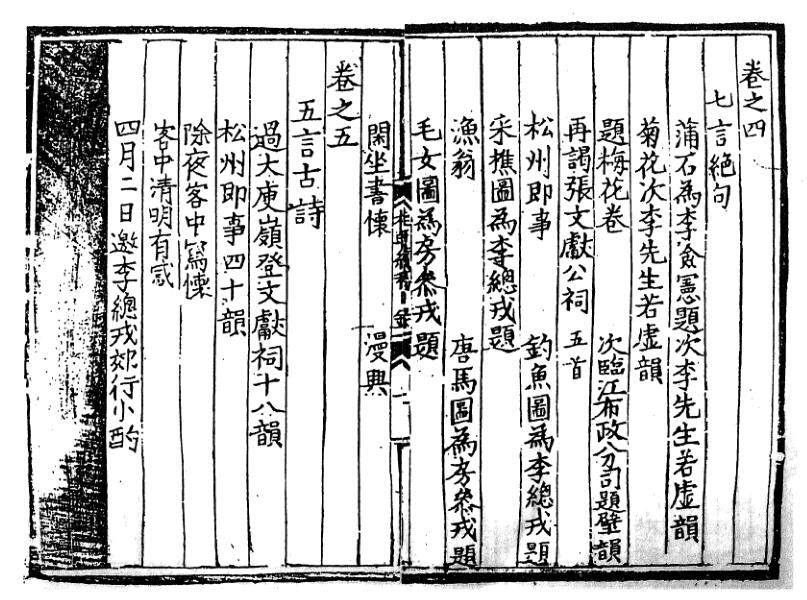 卷之四
七言絕句
蒲石為李僉憲題次李先生若虛韻
菊花次李先生若虛韻
題梅花卷 次臨江布政分司題壁韻
再謁張文獻公祠 五首
松州即事 釣魚圖為李總戎題
采樵圖為李總戎題
漁翁 唐馬圖為房參戎題
毛女圖為房參戎題
閑坐書懷 漫興
卷之五
五言古詩
過大庾嶺登文獻祠十八韻
松州即事四十韻
除夜客中寫懷
客中清明有感
四月二日邀李總戎郊行小酌